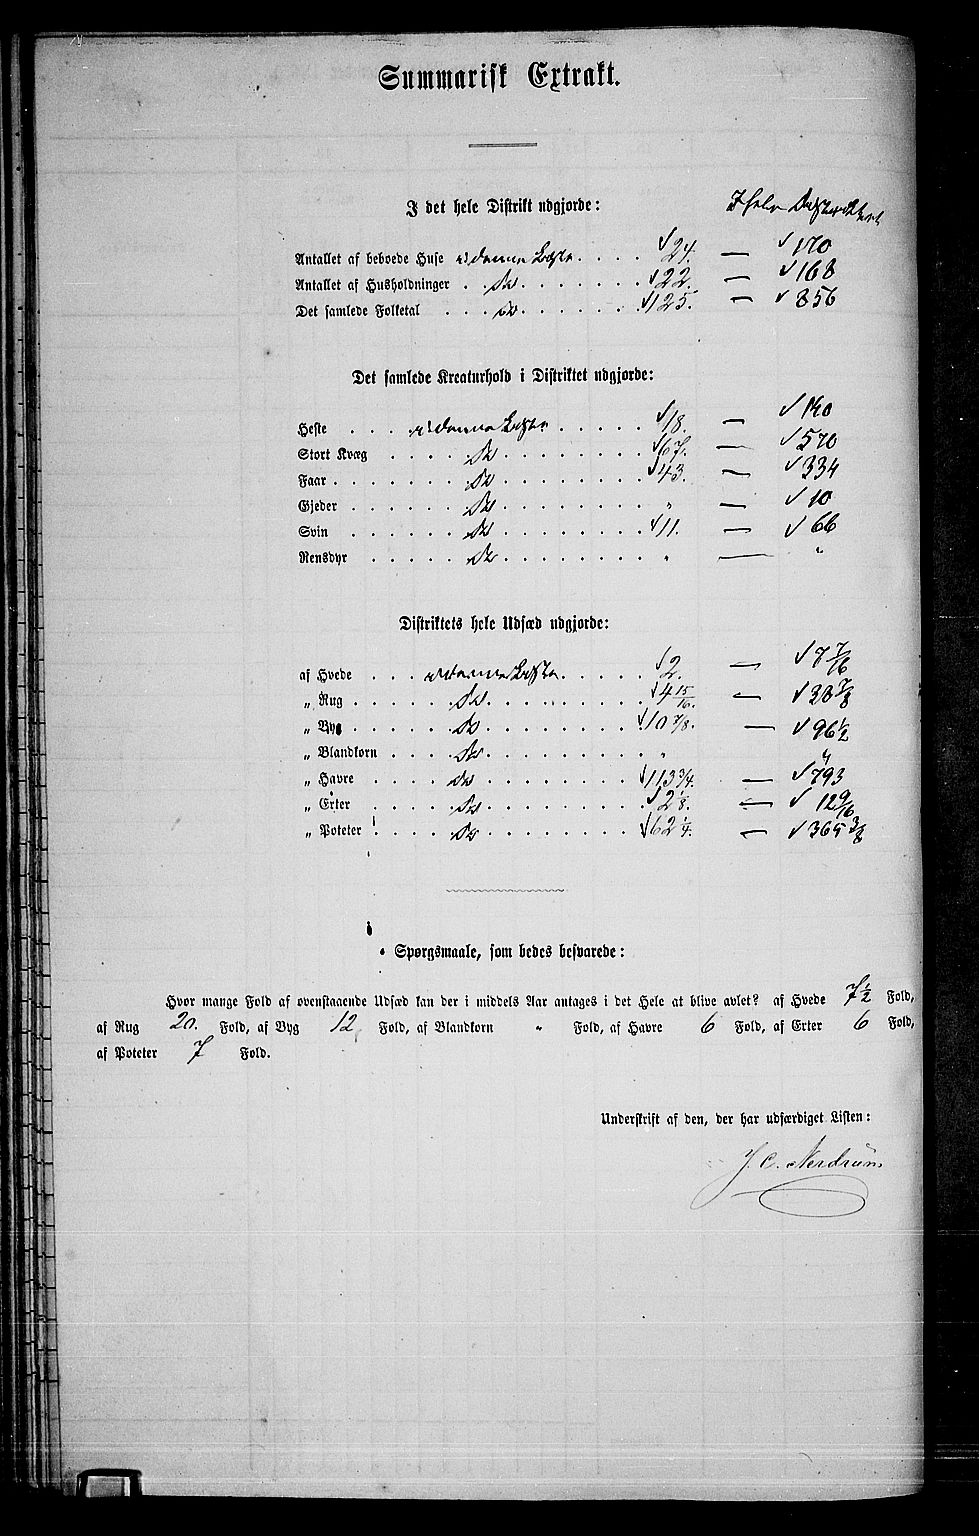 Summarisk Extrakt.
I det hele Distrikt udgjorde: I hele Distriktet
Antallet af beboede Huse i denne Liste . . . . √24. — √170
Antallet af Husholdninger . . Do . . . . . . . √22. — √168
Det samlede Folketal . . . . Do . . . . . . . √125. — √856
Det samlede Kreaturhold i Distriktet udgjorde:
Heste . . . . i denne Liste . . . . . √18. — √140
Stort Kvæg . . . . . Do . . . . . . . . √67. — √570
Faar . . . . . . . . Do . . . . . . . . √43. — √334
Gjeder . . . . . . Do . . . . . . . . " — √10
Svin . . . . . . Do . . . . . . . . √11. — √66
Rensdyr . . . . . Do . . . . . . . . " — "
Distriktets hele Udsæd udgjorde:
af Hvede . . . i denne Liste . . . . √2. — √7 7/16
„ Rug . . . . . Do . . . . . . . . √4 15/16. — √38 7/8
„ Byg . . . . . Do . . . . . . . . √10 7/8. — √96 1/2
„ Blandkorn . . . Do . . . . . . . . " "
„ Havre . . . . Do . . . . . . . . √113 3/4. — √793
„ Erter . . . . Do . . . . . . . . √2 1/8. — √12 9/16
„ Poteter . . . . Do . . . . . . . . √62 1/4. — √365 3/8
Spørgsmaale, som bedes besvarede:
Hvor mange Fold af ovenstaaende Udsæd kan der i middels Aar antages i det Hele at blive avlet? af Hvede 7 1/2 Fold,
af Rug 20. Fold, af Byg 12 Fold, af Blandkorn " Fold, af Havre 6 Fold, af Erter 6 Fold,
af Poteter 7 Fold.
Underskrift af den, der har udfærdiget Listen:
J. C. Nerdrum